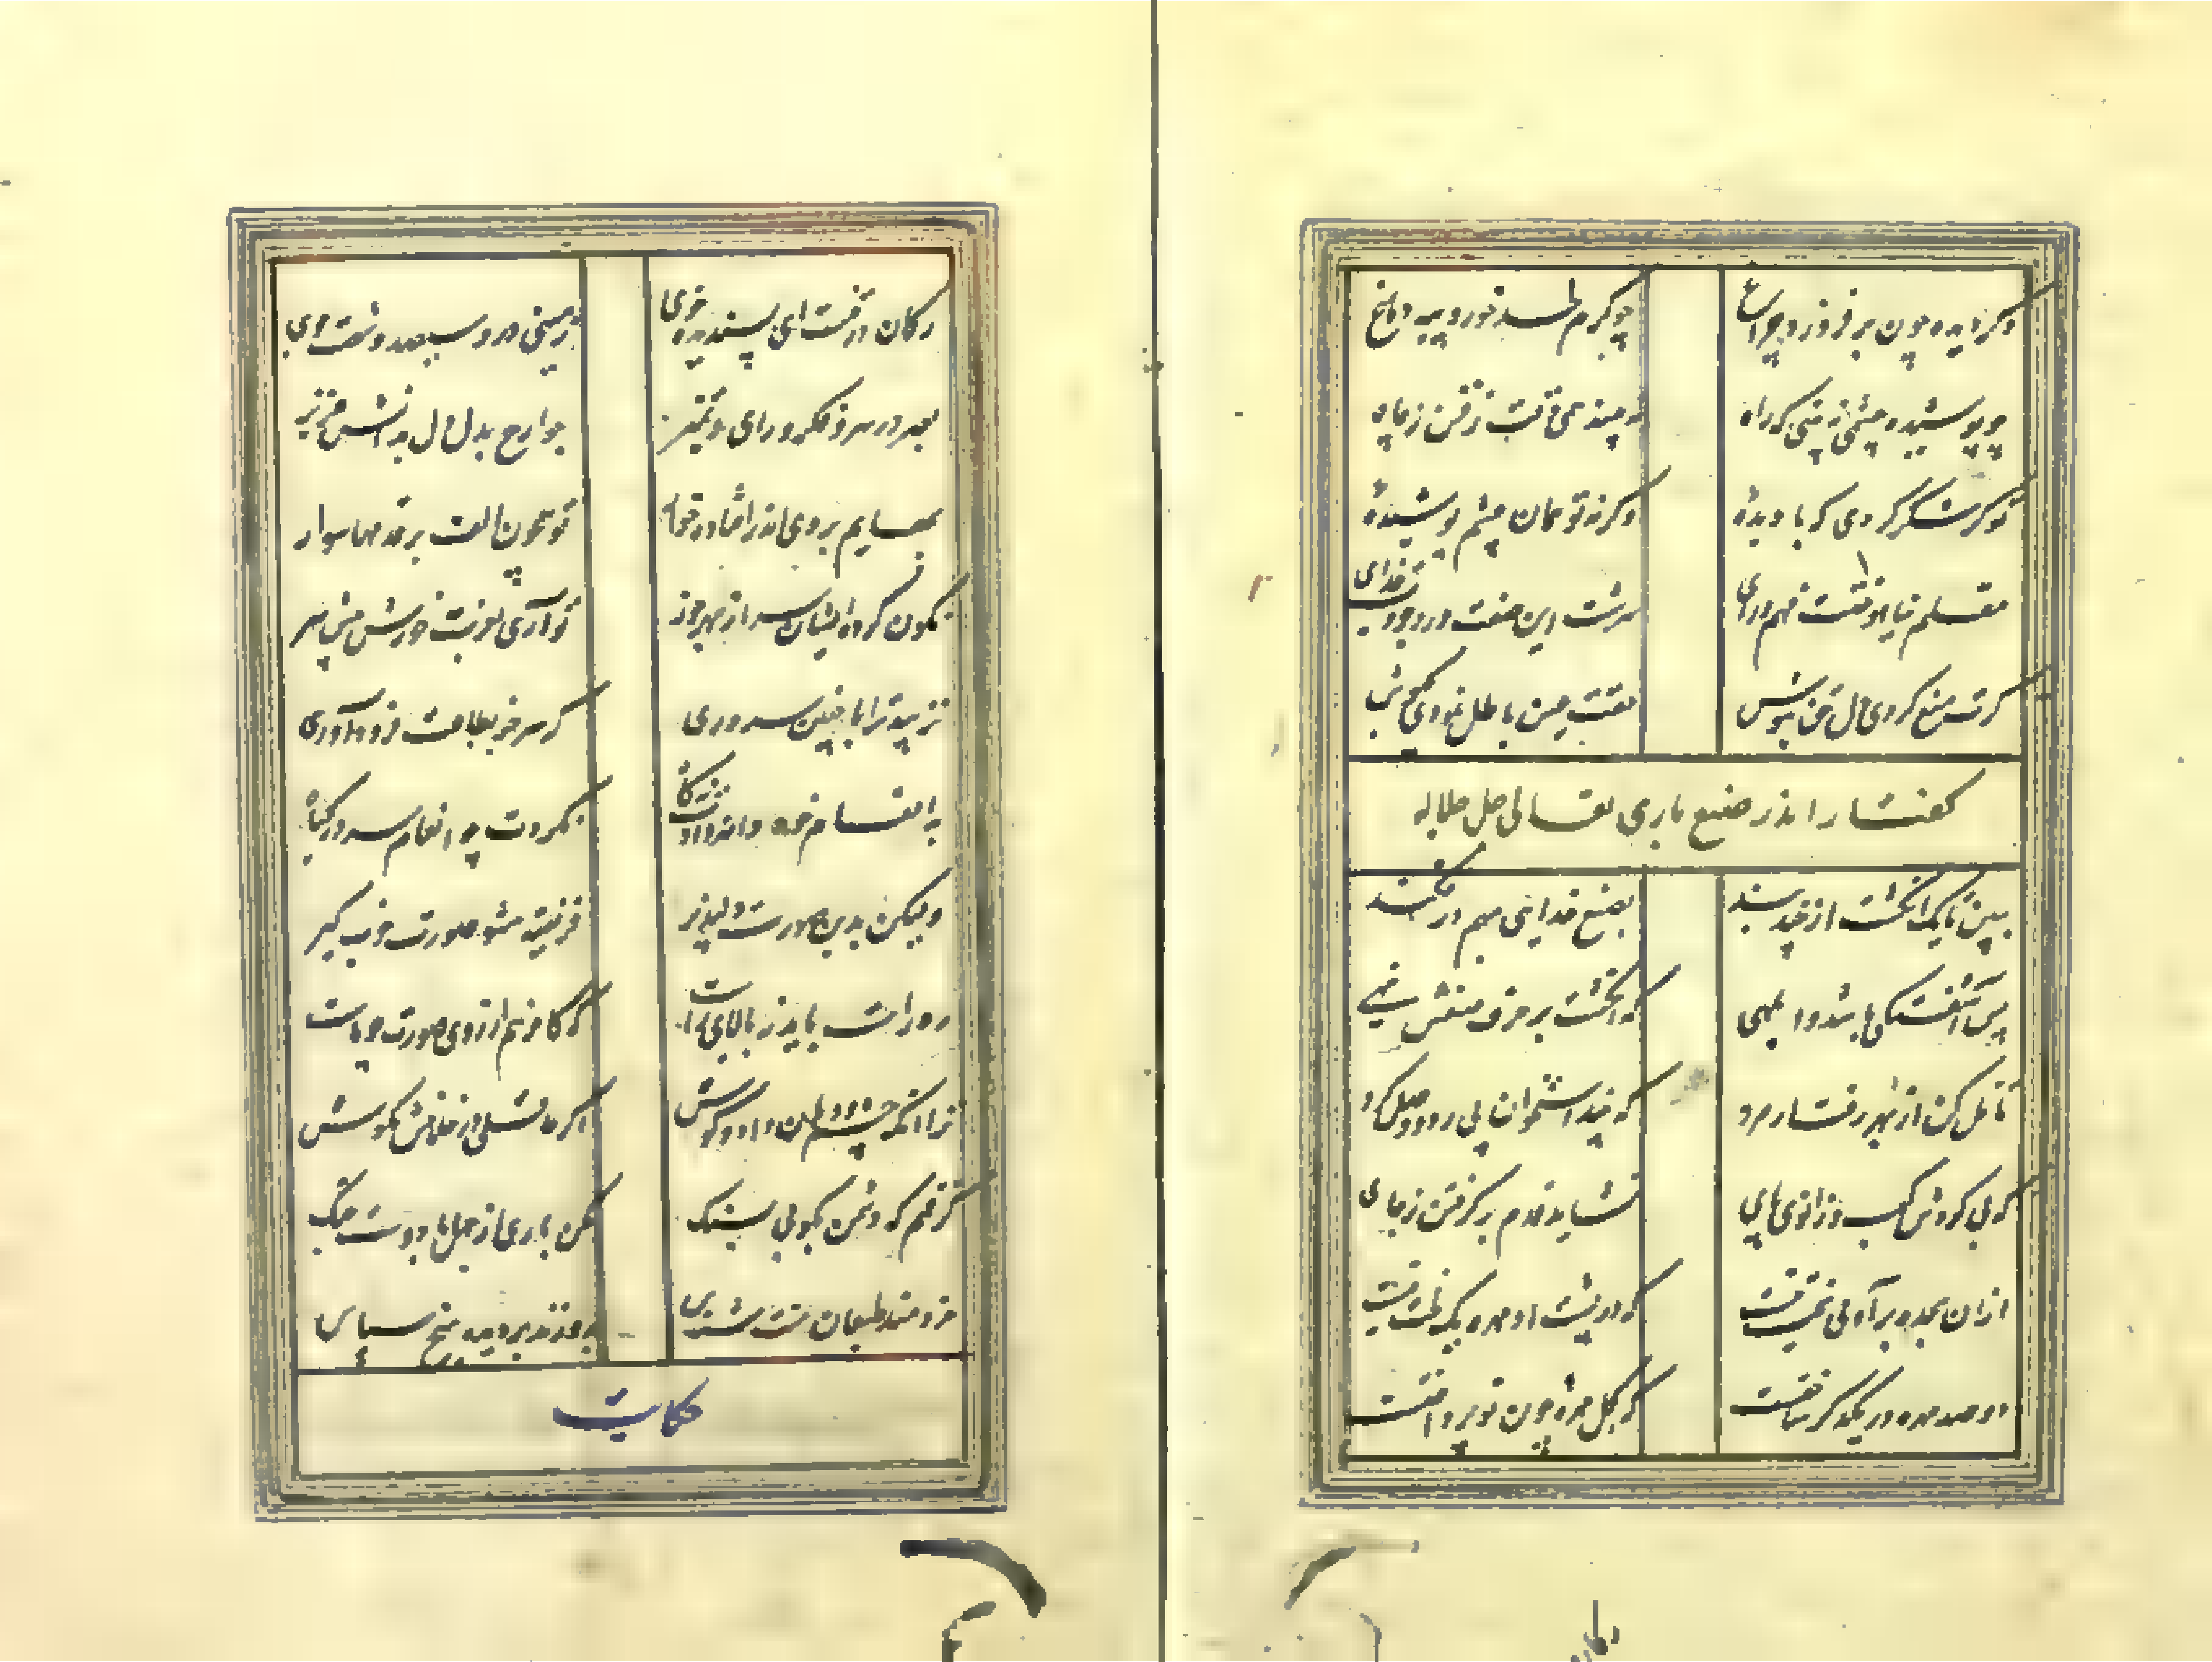 وگر دیده چون بر فروزد چراغ
چو کرم لحد خورد پیه دماغ
چو پوشیده چشمی نه بینی که راه
نه بیند همی وقت رفتن ز چاه
تو گر شکر کردی که با دیدهٔ
وگرنه تو همان چشم پوشیدهٔ
معلم نیاموختت فهم و رای
سرشت این صفت در وجودت خدای
گرت منع کردی دل حق نیوش
حقت عین باطل نمودی بگوش
گفتار اندر صنع باری تعالی جل جلاله
ببین تا یک انگشت از چند بند
بصنع خدایی بهم در فکند
پس آشفتگی باشد و ابلهی
که انگشت بر حرف صنعش نهی
تامل کن از بهر رفتار مرد
که چند استخوان پی زد و وصل کرد
که بی گردش کعب و زانوی پای
نشاید قدم بر گرفتن ز جای
از ان سجده بر آدمی سخت نیست
که در پشت او مهره یک لخت نیست
دو صد مهره در یکدگر ساختست
که گل مهرهٔ چون تو پرداختست
رکان در تنت ای پسندیده خوی
زمینی درو سیصد و شصت جوی
بصر در سر و فکر و رای و تمیز
جوارح بدل دل بدانش عزیز
بهایم بروی اندر افتاده خوار
تو همچون الف بر قدمها سوار
نگون کرده ایشان سر از بهر خور
تو آری بعزت خورش پیش سر
نزیبد ترا با چنین سروری
که سر جز بطاعت فرود آوری
بانعام خود دانه دادت نه کاه
نکردت چو انعام سر در گیاه
ولیکن بدین صورت دلپذیر
فریفته مشو صورت خوب گیر
ره راست باید نه بالای راست
که کافر هم از روی صورت چو ماست
ترا آنکه چشم و دهان داد و گوش
اگر عاقلی در خلافش مکوش
گرفتم که دشمن بکوبی بسنگ
مکن باری از جهل با دوست جنگ
خردمند طبعان منت شناس
بدوزند بر دیده میخ سپاس
حکایت